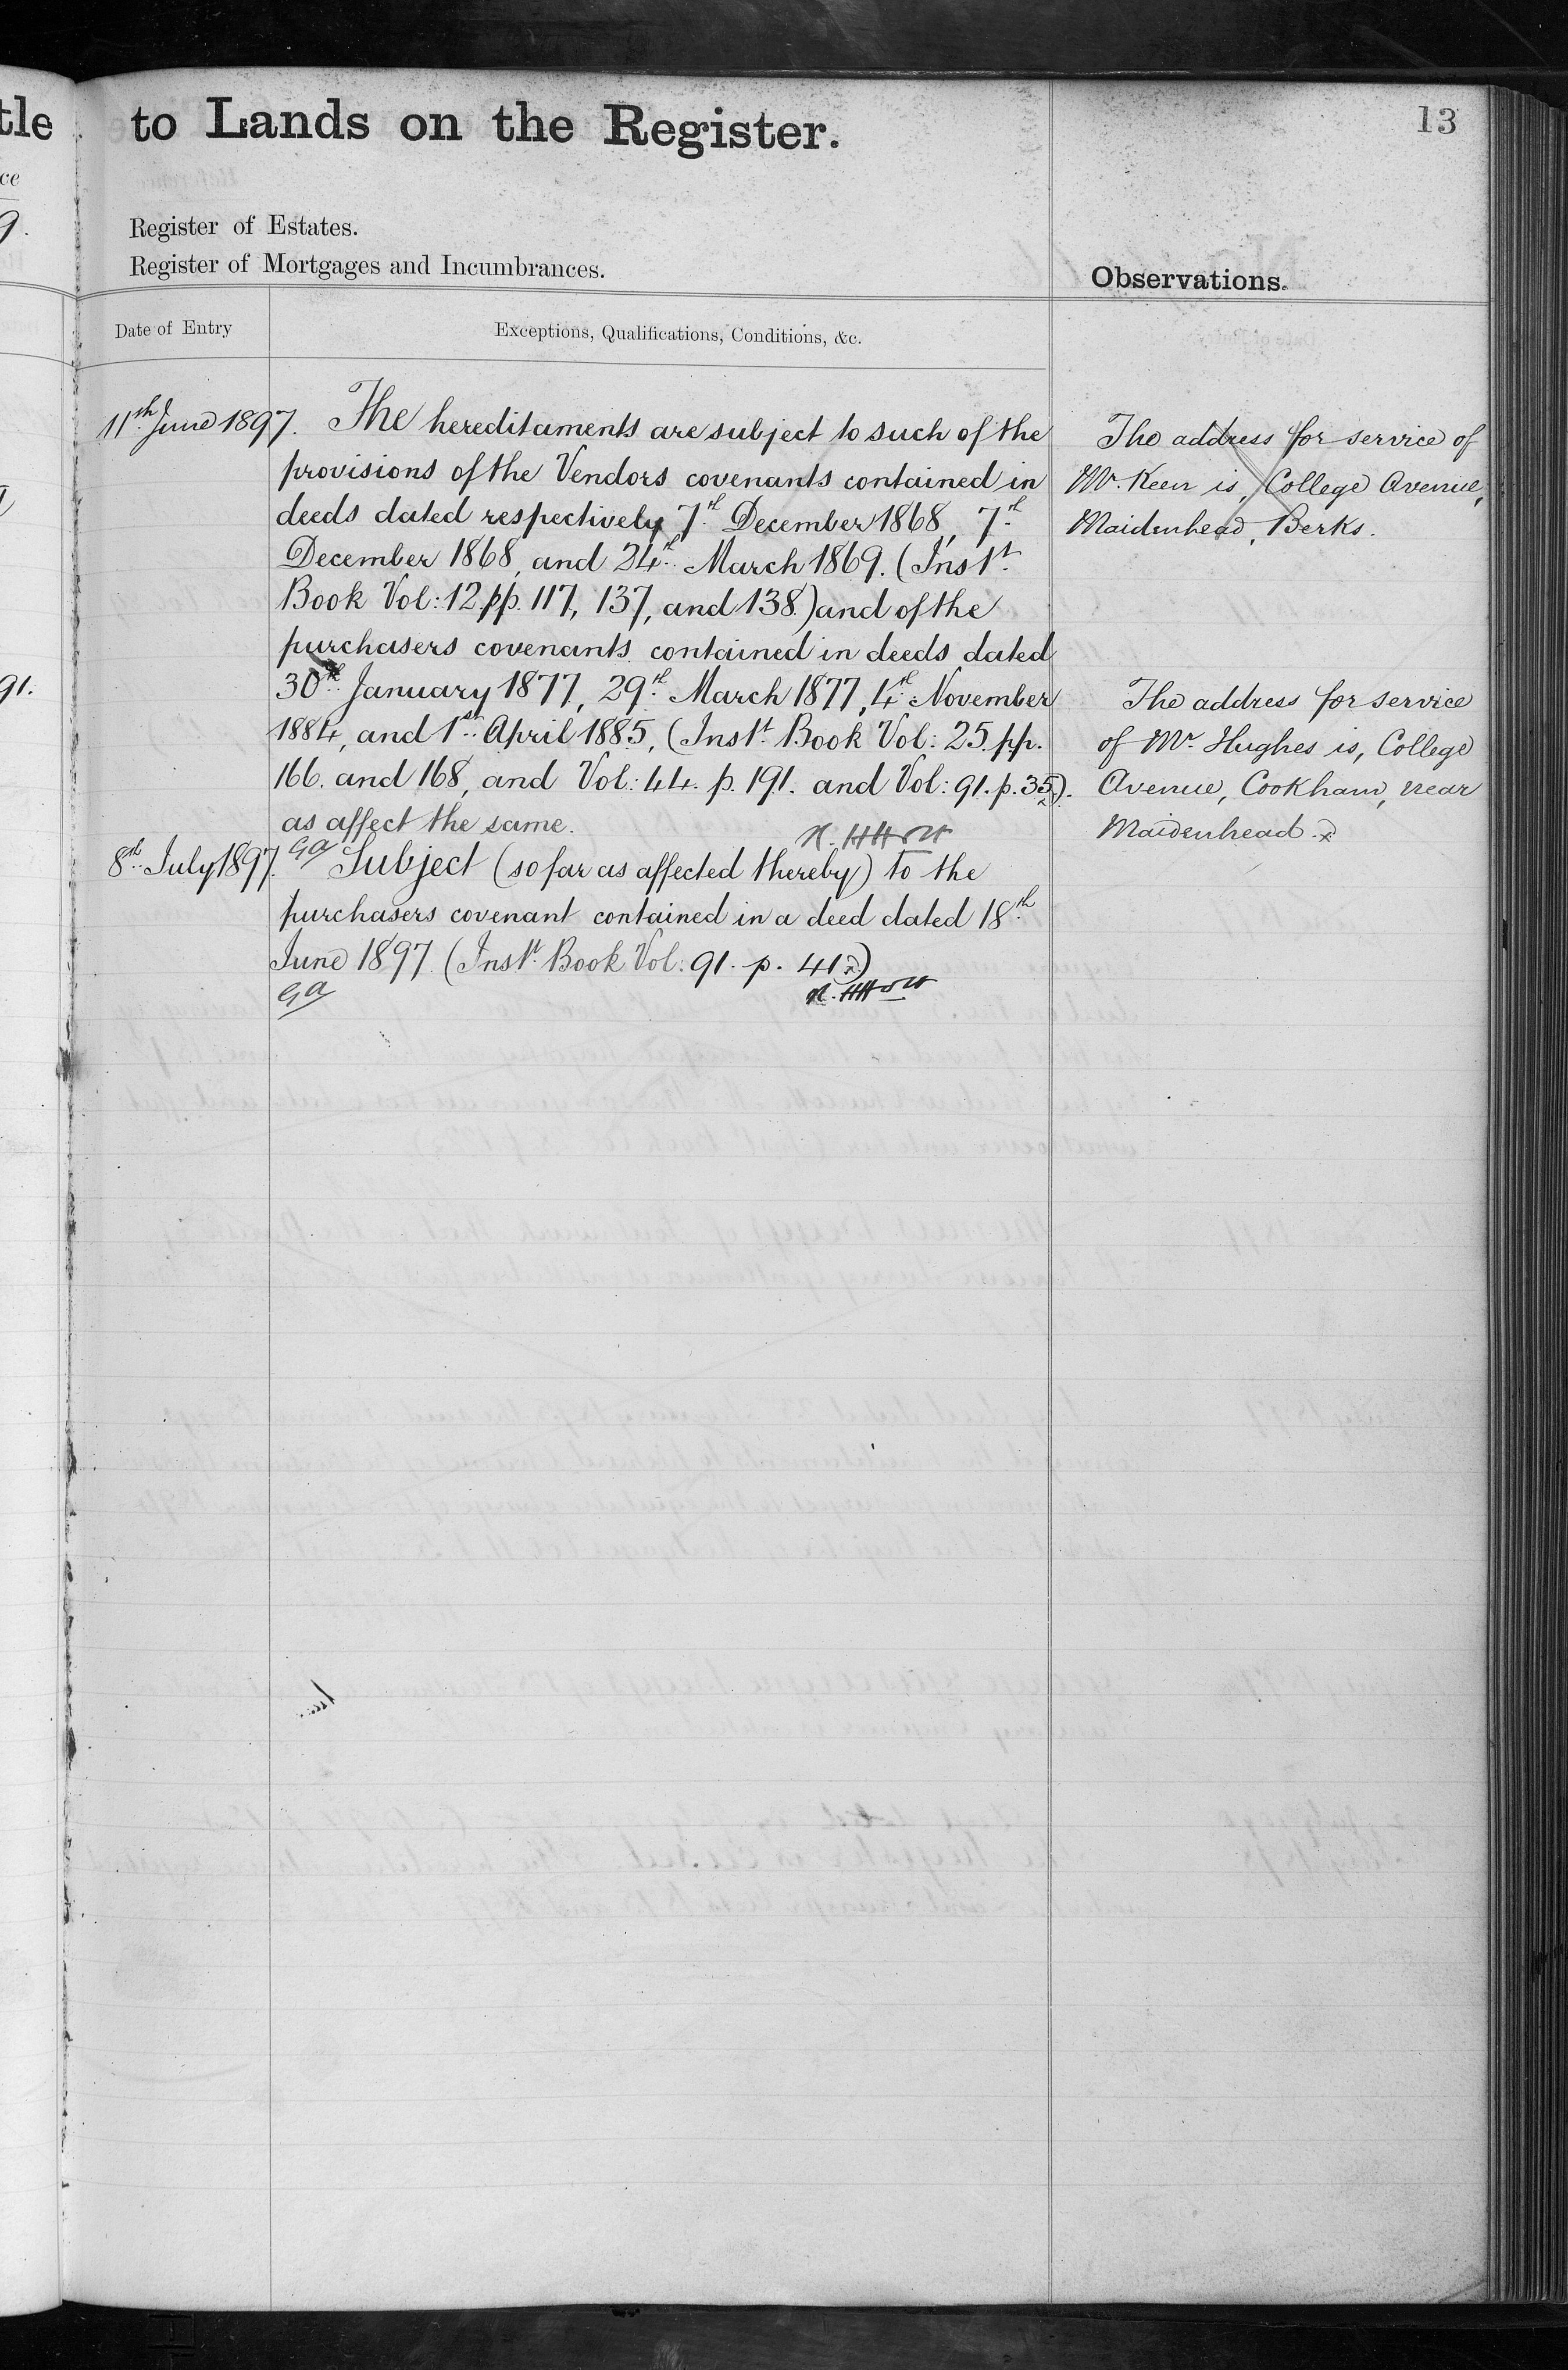 tle
ce
9.
91.
to Lands on the Register.
13
Register of Estates.
Register of Mortgages and Incumbrances.
Observations.
Date of Entry
Exceptions, Qualifications, Conditions, &c.
11th June 1897.
The hereditaments are subject to such of the
provisions of the Vendors covenants contained in
deeds dated respectively 7th December 1868, 7th
December 1868, and 24th March 1869. (Inst
Book Vol: 12 pp. 117, 137, and 138.) and of the
purchasers covenants contained in deeds dated
30th January 1877, 29th March 1877, 4th November
1884, and 1st April 1885, (Inst Book Vol: 25. pp.
166. and 168, and Vol: 44. p. 191. and Vol: 91. p. 35).
as affect the same.
8th July 1897.
GA
Subject (so far as affected thereby) to the
purchasers covenant contained in a deed dated 18th
June 1897. (Inst Book Vol: 91. p. 41)
GA
The address for service of
Mr. Keen is, College Avenue,
Maidenhead, Berks.
The address for service
of Mr. Hughes is, College
Avenue, Cookham, near
Maidenhead.